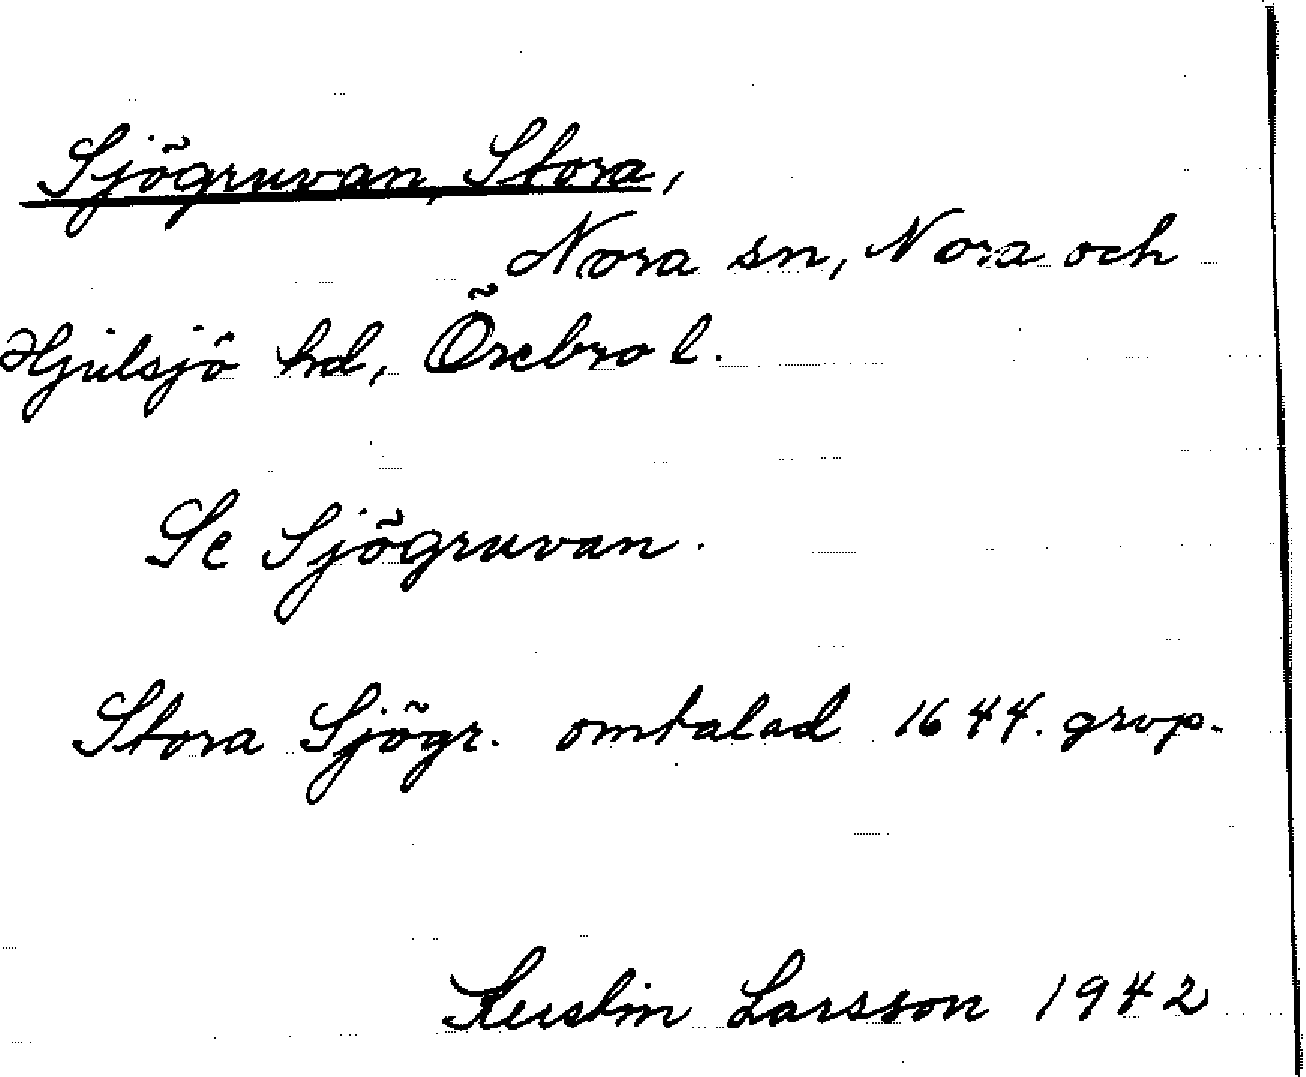 Sjögruvan, Stora,
Nora sn, Nora och
Hjulsjö hd, Örebro l.
Se Sjögruvan.
Stora Sjögr. omtalad 1644. grvp.
Kerstin Larsson 1942